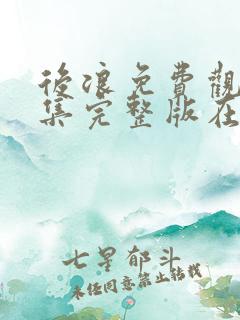 後浪免費觀
集完整版在
七星郁斗
未经同意禁止转载